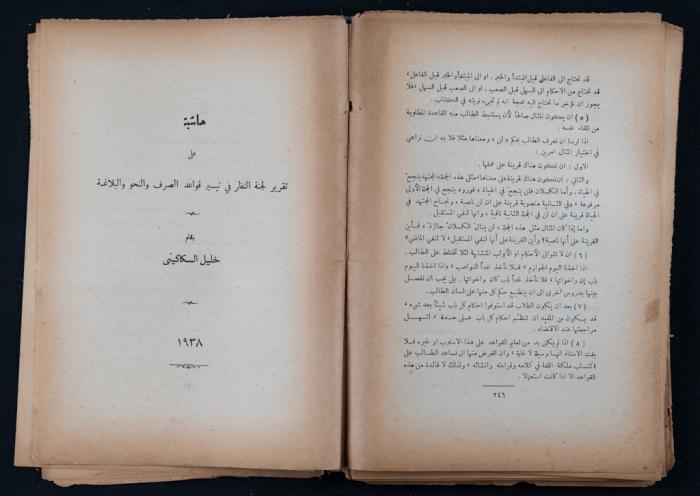 قد تحتاج الى الفاعل قبل المبتدأ والخبر، او الى المبتدأ والخبر قبل الفاعل،
قد تحتاج من الاحكام الى السهل قبل الصعب، او الى الصعب قبل السهل، فلا
يجوز ان نؤخر ما نحتاج اليه بحجة انه لم تجيء نوبته في الكتاب.
(٥) ان يكون المثال صالحاً لأن يستنبط الطالب منه القاعدة المطلوبة
من تلقاء نفسه.
اذا اردنا ان نعرف الطالب بحكم « لن » ومعناها مثلا فلا بد ان نراعي
في اختيار المثال امرين:
الاول: ان تكون هناك قرينة على عملها.
والثاني: ان تكون هناك قرينة على معناها، مثل هذه الجملة « المجتهد ينجح
في الحياة، وأما الكسلان فلن ينجح في الحياة » فورود ينجح في الجملة الاولى
مرفوعة، وفي الثانية منصوبة قرينة على ان لن ناصبة، ونجاح المجتهد في
الحياة قرينة على ان لن في الجملة الثانية نافية، وانها لنفي المستقبل.
واما إذا كان المثال مثل هذه الجملة « لن ينال الكسلان جائزة » فأين
القرينة على أنها ناصبة؟ وأين القرينة على أنها لنفي المستقبل، لا لنفي الماضي؟
(٦) ان لا تتوالى الأحكام او الأبواب المتشابهة لئلا تختلط على الطالب.
اذا اخذنا اليوم الجوازم، فلا نأخذ غداً النواصب، واذا اخذنا اليوم
باب إن واخواتها، فلا نأخذ غداً باب كان واخواتها. بل يجب ان نفصل
بينها بدروس أخرى الى ان ينطبع حكم كل منها على لسان الطالب.
(٧) بعد ان يكون الطلاب قد استوفوا احكام كل باب شيئاً بعد شيء،
قد يكون من المفيد ان تنظم احكام كل باب على حدة، لتسهل
مراجعتها عند الاقتضاء.
(٨) اذا لم يكن بد من تعليم القواعد على هذا الاسلوب او غيره فلا
الاستاذ انها وسيلة لا غاية، وان الغرض منها ان تساعد الطالب على
اكتساب ملكة اللغة في كلامه وقراءته وانشائه، ولذلك لا فائدة من هذه
القواعد الا اذا كانت استعمالا.
٢٤٦
حاشية
على
تقرير لجنة النظر في تيسير قواعد الصرف والنحو والبلاغة
بقلم
خليل السكاكيني
١٩٣٨